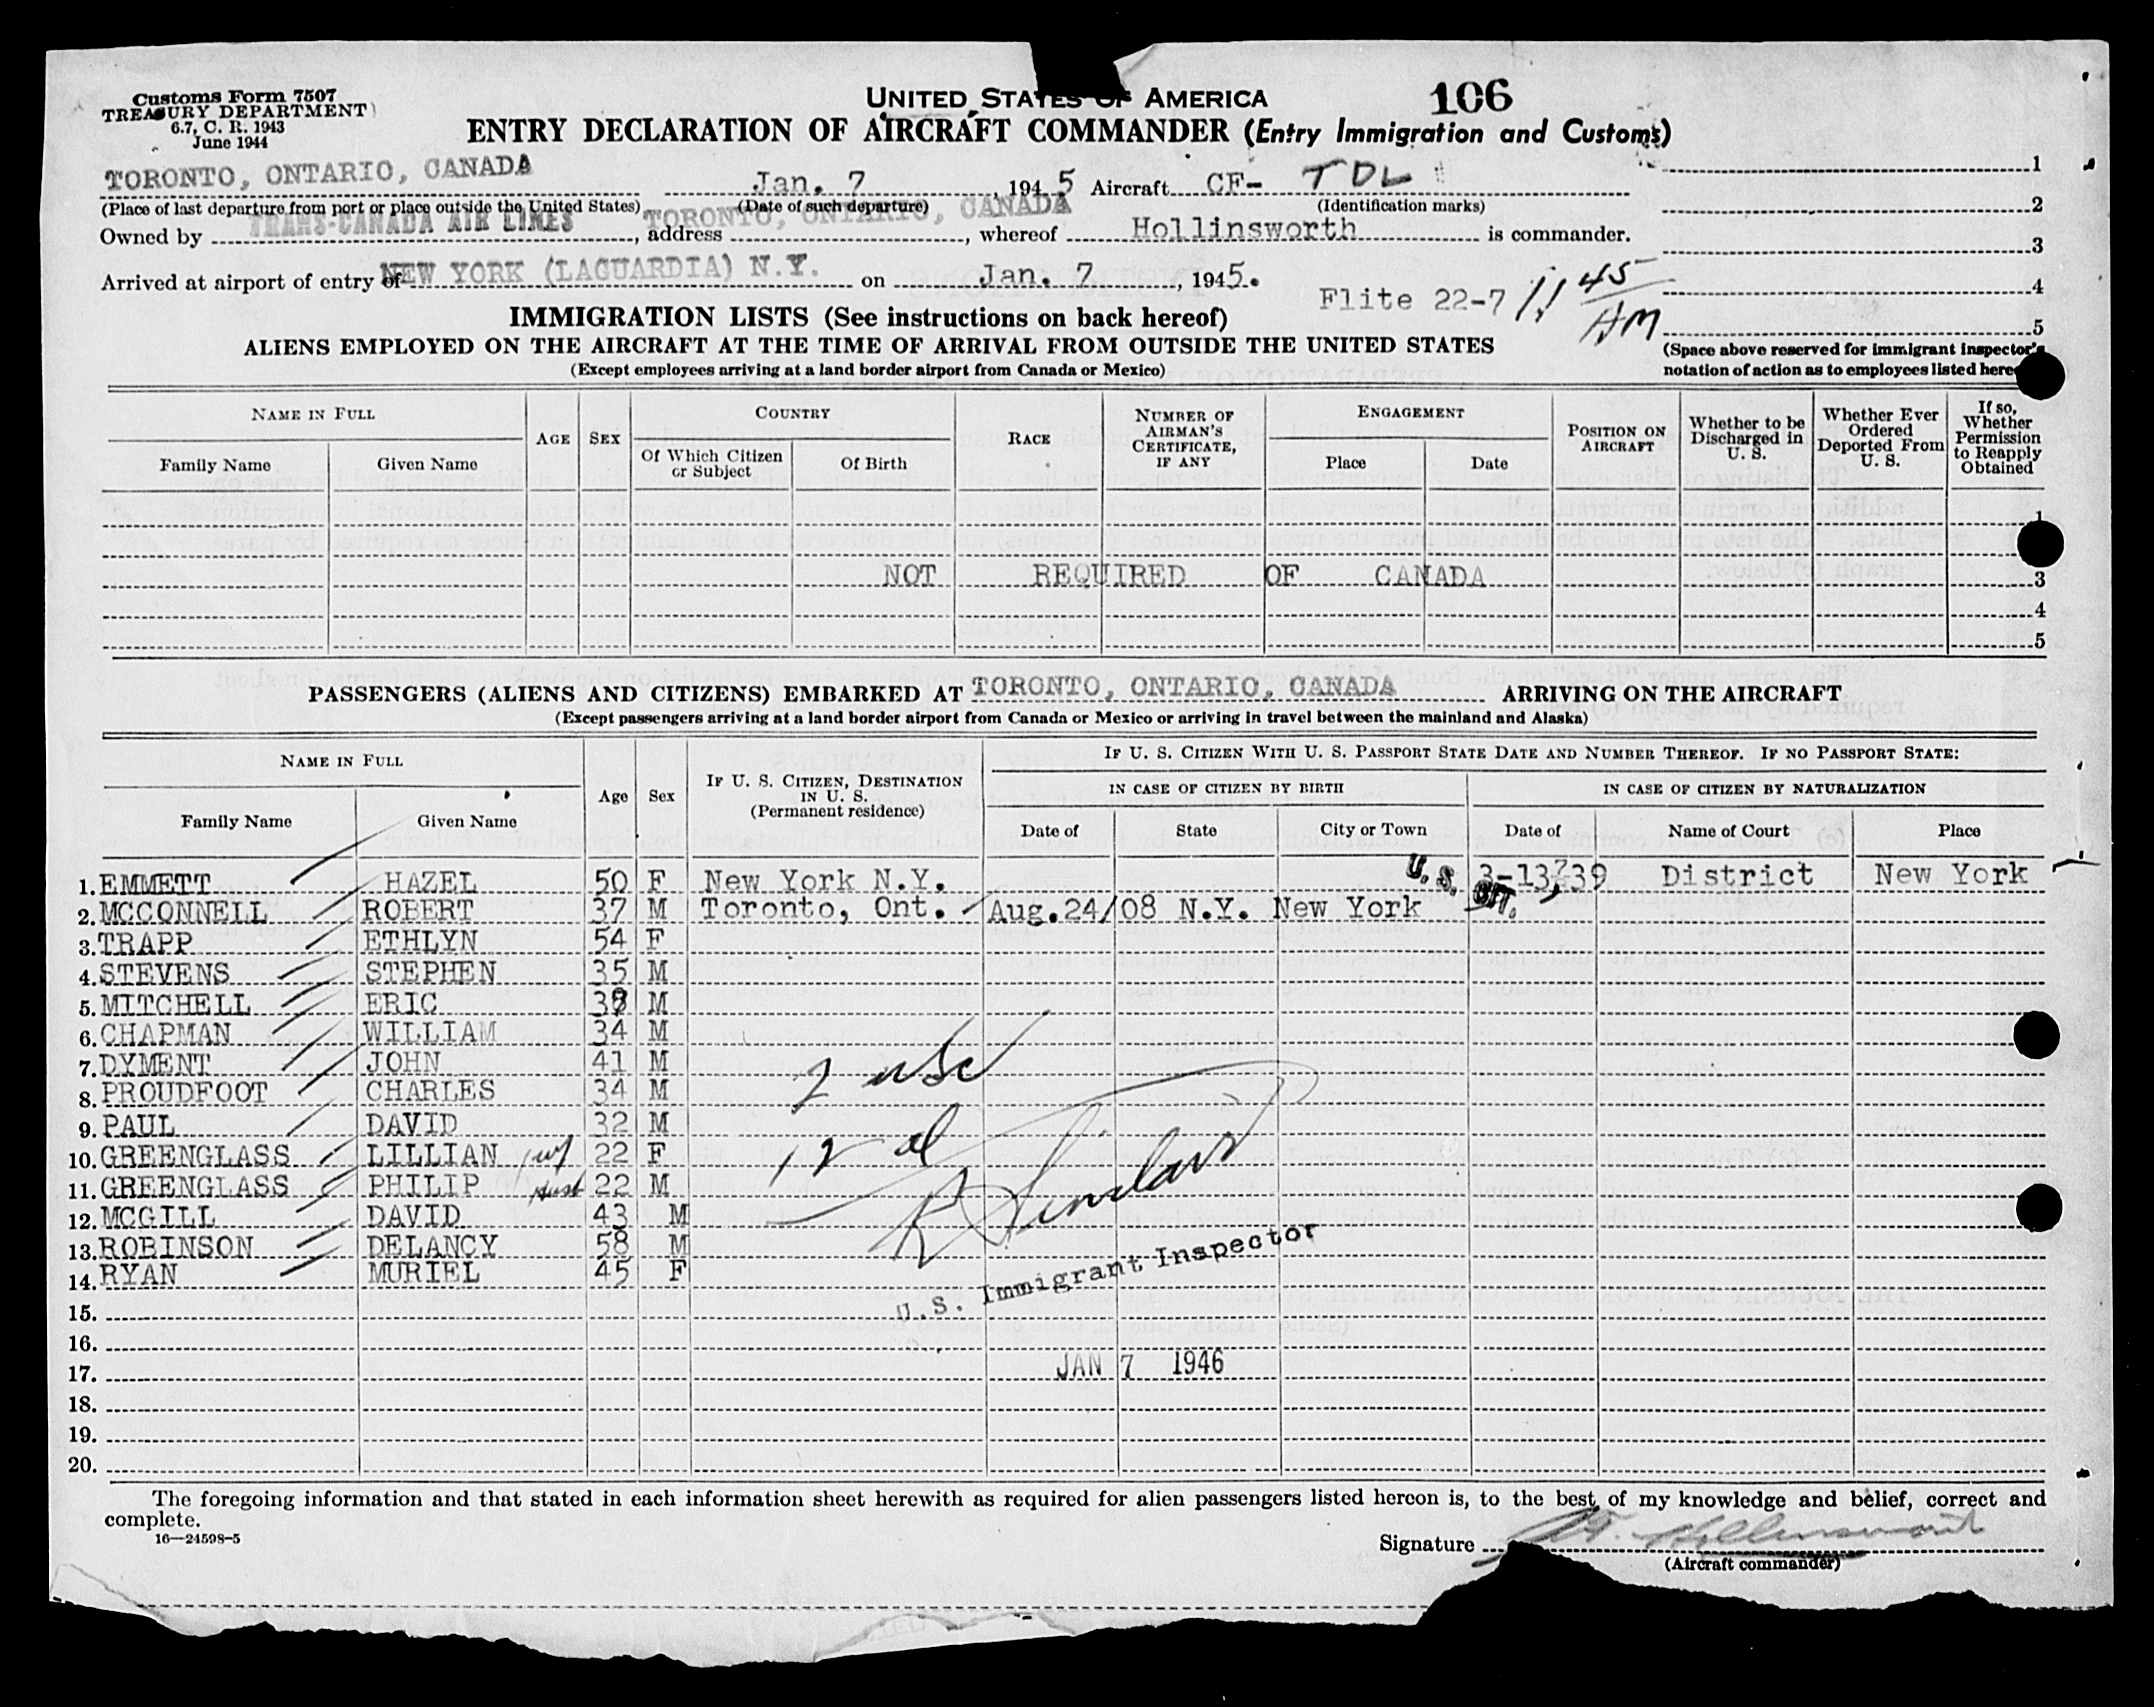 Customs Form 7507
TREASURY DEPARTMENT
6.7, C. R. 1943
June 1944
UNITED STATES OF AMERICA
106
ENTRY DECLARATION OF AIRCRAFT COMMANDER (Entry Immigration and Customs)
TORONTO, ONTARIO, CANADA Jan. 7, 1945 Aircraft CF- TDL
(Place of last departure from port or place outside the United States) (Date of such departure) (Identification marks)
Owned by TRANS-CANADA AIR LINES, address TORONTO, ONTARIO, CANADA, whereof Hollinsworth is commander.
Arrived at airport of entry of NEW YORK (LAGUARDIA) N.Y. on Jan. 7, 1945.
Flite 22-7 11 45 AM
1
2
3
4
5
(Space above reserved for immigrant inspector's
notation of action as to employees listed
IMMIGRATION LISTS (See instructions on back hereof)
ALIENS EMPLOYED ON THE AIRCRAFT AT THE TIME OF ARRIVAL FROM OUTSIDE THE UNITED STATES
(Except employees arriving at a land border airport from Canada or Mexico)
NAME IN FULL
Family Name Given Name
AGE SEX
COUNTRY
Of Which Citizen or Subject Of Birth
RACE
NUMBER OF AIRMAN'S CERTIFICATE, IF ANY
ENGAGEMENT
Place Date
POSITION ON AIRCRAFT
Whether to be Discharged in U. S.
Whether Ever Ordered Deported From U. S.
If so, Whether Permission to Reapply Obtained
1
NOT REQUIRED OF CANADA 3
4
5
PASSENGERS (ALIENS AND CITIZENS) EMBARKED AT TORONTO, ONTARIO, CANADA ARRIVING ON THE AIRCRAFT
(Except passengers arriving at a land border airport from Canada or Mexico or arriving in travel between the mainland and Alaska)
NAME IN FULL
Family Name Given Name
Age Sex
IF U. S. CITIZEN, DESTINATION IN U. S.
(Permanent residence)
IF U. S. CITIZEN WITH U. S. PASSPORT STATE DATE AND NUMBER THEREOF. IF NO PASSPORT STATE:
IN CASE OF CITIZEN BY BIRTH IN CASE OF CITIZEN BY NATURALIZATION
Date of State City or Town Date of Name of Court Place
1. EMMETT HAZEL 50 F New York N.Y. U. S. 3-13-39 District New York
2. MCCONNELL ROBERT 37 M Toronto, Ont. Aug.24/08 N.Y. New York
3. TRAPP ETHLYN 54 F
4. STEVENS STEPHEN 35 M
5. MITCHELL ERIC M
6. CHAPMAN WILLIAM 34 M
7. DYMENT JOHN 41 M
8. PROUDFOOT CHARLES 34 M
9. PAUL DAVID 32 M
10. GREENGLASS LILLIAN wf 22 F
11. GREENGLASS PHILIP Hust 22 M
12. MCGILL DAVID 43 M
13. ROBINSON DELANCY 58 M
14. RYAN MURIEL 45 F
2 usc
12 al
R Sinclair
U.S. Immigrant Inspector
15.
16.
17. JAN 7 1946
18.
19.
20.
The foregoing information and that stated in each information sheet herewith as required for alien passengers listed hereon is, to the best of my knowledge and belief, correct and
complete.
16—24598-5
Signature Hollinsworth
(Aircraft commander)